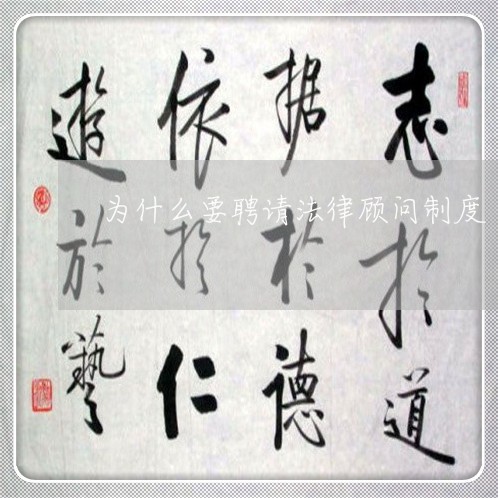 志扵道
据於德
依扵仁
遊於藝
为什么要聘请法律顾问制度